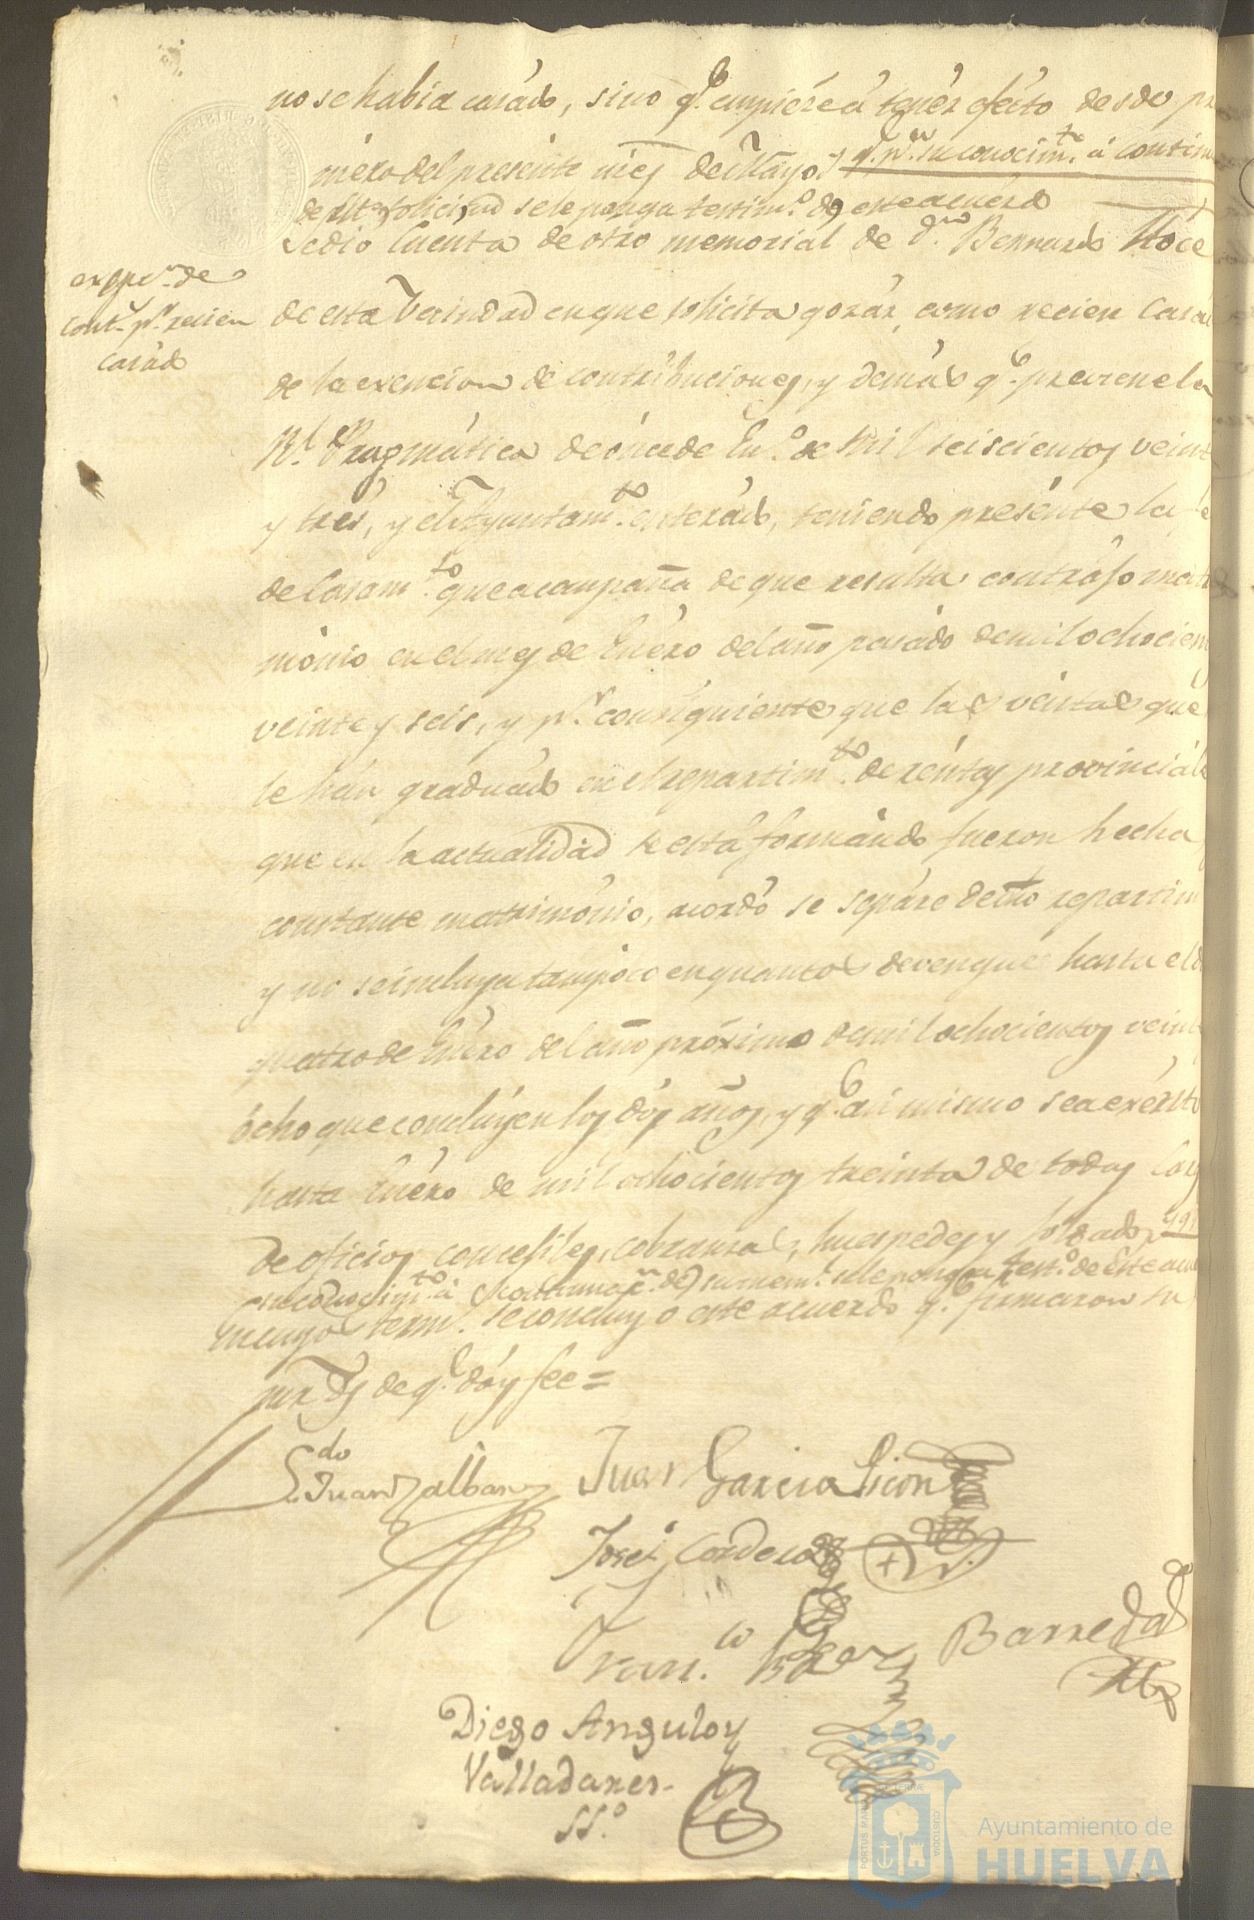 no se había casádo, sino q.e empiéze á tenér efécto desde pr
méro del presénte més de Mayo y q.e p.a su conocim.to á contin
de ésta solicitud se le ponga testim.o de este acuérdo
Se dió Cuenta de otro memorial de D.n Bernardo
exen.n de
cont.s p.r recien
casádo
de esta Vecindad en que solicita gozár, como recien Casá
de la exencion de contribuciones, y demás q.e previene la
R.l Pragmática de ónce de En.o de mil seiscientos veint
y trés, y el Ayuntam.to enterádo, teniendo presénte la
de Casam.to que acompaña de que resulta contrájo matri
mónio en el mes de Enéro del año pasádo de mil ochocien
veinte y seis, y p.r consiguiente que las véntas que
le hán graduádo en el repartim.to de réntas provinciále
que en la actualidad se está formándo fueron hecha
constante matrimónio, acordó se sepáre de dho repartim
y no se incluya tampóco en quantos devengue hasta el d
quatro de Enéro del año próximo de mil ochocientos veint
ócho que conclúyen los dós años, y q.e asi mismo sea exénto
hasta Enéro de mil ochocientos treinta de todas Car
de oficios concejiles, cobranzas, huespedes y soldados,
su conocim.to á continuac.n de su mem.l se le ponga test.o de este acue
En cuyos term.s se concluyo este acuerdo q.e firmaron su
mrds de q.e dóy fee =
L.do Juan Zalbany Juan Garcia Picon
José Cordero
Fran.co Baez Barreda
Diego Angulo y
Valladares
SS.o
Ayuntamiento de
HUELVA